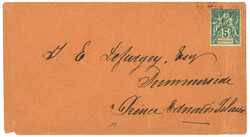 J. E. Lefurgey, Esq
Summerside
Prince Edwards Island
5